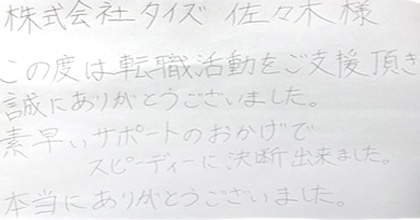 株式会社タイズ 佐々木様
この度は転職活動をご支援頂き
誠にありがとうございました。
素早いサポートのおかげで
スピーディーに決断出来ました。
本当にありがとうございました。